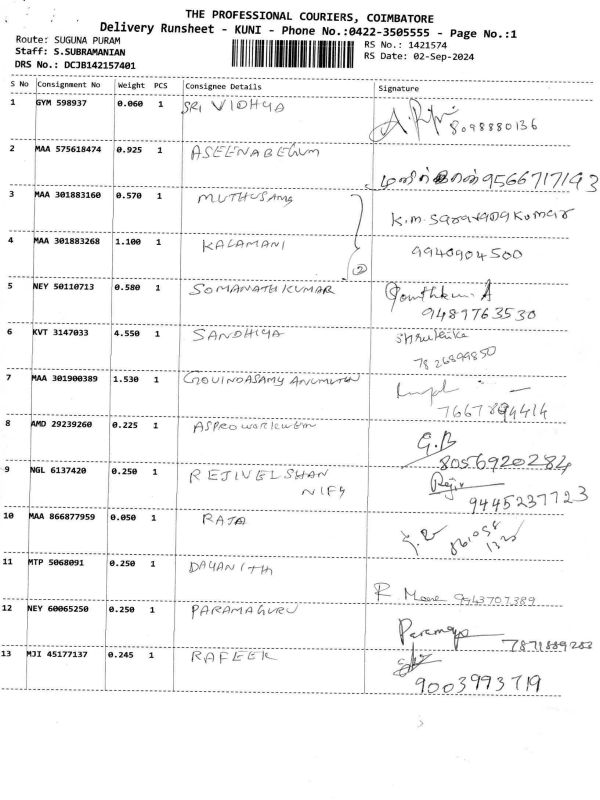 THE PROFESSIONAL COURIERS, COIMBATORE
Delivery Runsheet - KUNI - Phone No.:0422-3505555 - Page No.:1
Route: SUGUNA PURAM
Staff: S.SUBRAMANIAN
DRS No.: DCJB142157401
RS No.: 1421574
RS Date: 02-Sep-2024
S No Consignment No Weight PCS Consignee Details Signature
1 GYM 598937 0.060 1 SRI VIDHYA
8098880136
2 MAA 575618474 0.925 1 ASEENABEGUM
9566717193
3 MAA 301883160 0.570 1 MUTHUSAMY K.M. Saravanakumar
4 MAA 301883268 1.100 1 KALAMANI 9940904500
2
5 NEY 50110713 0.580 1 SOMANATHKUMAR
9487763530
6 KVT 3147033 4.550 1 SANDHIYA
7826899850
7 MAA 301900389 1.530 1 GOVINDASAMY
7667894414
8 AMD 29239260 0.225 1 G.B
8056920284
9 NGL 6137420 0.250 1 REJIVELSHAN Rejiv
NIFY 9445237723
10 MAA 866877959 0.050 1 RAJA
11 MTP 5068091 0.250 1 DAYANITH
R 9943707389
12 NEY 60065250 0.250 1 PARAMAGURU
13 MJI 45177137 0.245 1 RAFEEK
9003993719